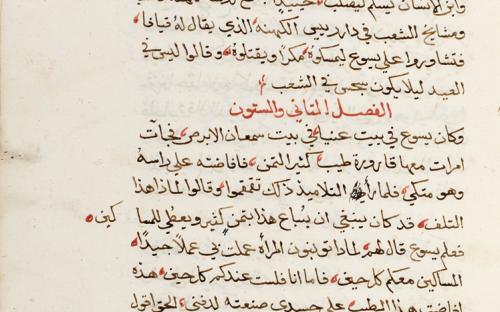 وابن الانسان يسلم ليصلب
ومشايخ الشعب في دار رييس الكهنة الذي يقال له قيافا
فتشاوروا علي يسوع ليمسكوه بمكر ويقتلوه وقالوا ليس في
العيد ليلا يكون سجس في الشعب
الفصل الثاني والستون
وكان يسوع في بيت عنيا في بيت سمعان الابرص فجآت
امراة معها قارورة طيب كثير الثمن فافاضته علي راسه
وهو متكي فلما راو التلاميذ ذلك تقمقموا وقالوا لماذا هذا
التلف قد كان ينبغي ان يباع هذا بثمن كثير ويعطي للمسا كين
فعلم يسوع قال لهم لماذا توبنون المراة عملت بي عملا جيدا
المساكين معكم كل حين فاما انا فلست عندكم كل حين هذه
افاضت هذا الطيب علي جسدي صنعته لدفني الحق اقول